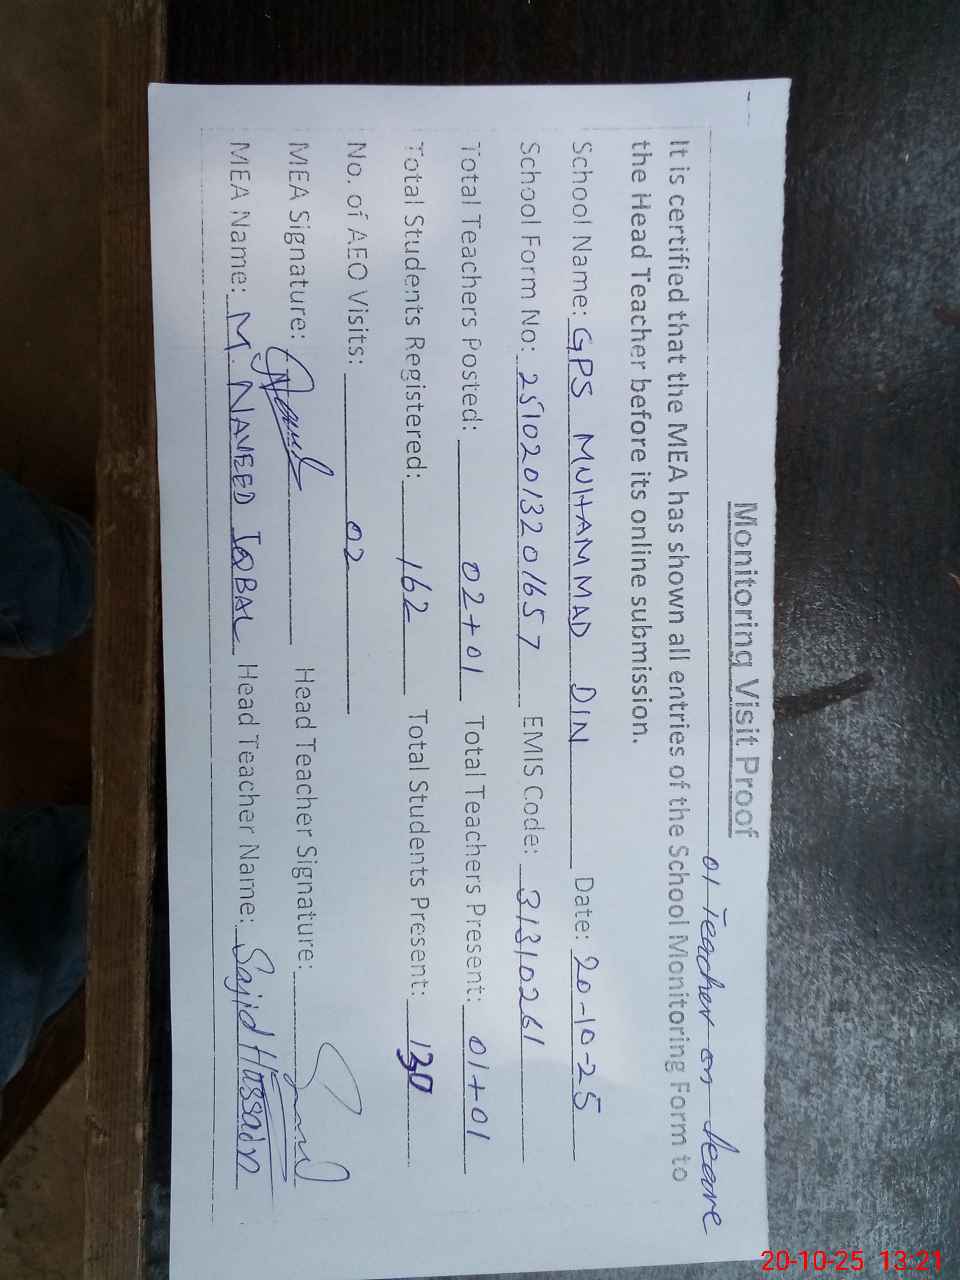 Monitoring Visit Proof
01 Teacher on leave
It is certified that the MEA has shown all entries of the School Monitoring Form to
the Head Teacher before its online submission.
School Name: GPS MUHAMMAD DIN Date: 20-10-25
School Form No: 25102013201657 EMIS Code: 31310261
Total Teachers Posted: 02+01 Total Teachers Present: 01+01
Total Students Registered: 162 Total Students Present: 130
No. of AEO Visits: 02
MEA Signature: Head Teacher Signature:
MEA Name: M. NAVEED IQBAL Head Teacher Name: Sajid Hussain
20-10-25 13:21